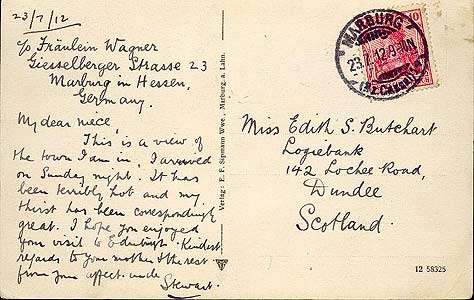 23/7/12
c/o Fräulein Wagner
Giesselberger Strasse 23
Marburg in Hessen,
Germany.
My dear niece,
This is a view of
the town I am in, I arrived
on Sunday night. It has
been terribly hot and my
thirst has been correspondingly
great. I hope you enjoyed
your visit to Edinburgh. Kindest
regards to your mother & the rest
from your affect. uncle
Stewart.
Verlag: E. F. Sipmann Wwe., Marburg a. Lahn.
MARBURG
23.7.12.9-10N
10
Miss Edith S. Butchart
Logiebank
142 Lochee Road,
Dundee
Scotland.
12 58325